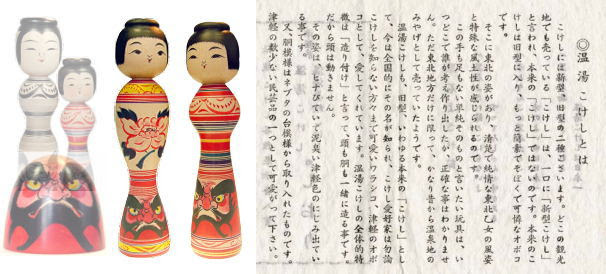 ◎温湯こけしとは
こけしに新型、旧型の二種ございます。どこの観光
地でも売っている「こけし」は、一口に「新型こけし」
と言われ、本来の「こけし」ではないのです。本来のこ
けしは旧型に入り、もっと簡素でそぼくで可憐なオボコ
です。
そこに東北の姿があり、清楚で純情な東北乙女の風姿
と特殊な風土性が感じられるのです。
この手も足もない単純そのものと言いたい玩具は、い
つどこで誰が考え作り出したか、正確な事はわかりませ
ん。ただ東北地方だけに限って、かなり昔から温泉地の
みやげとして売っていたようです。
温湯こけしも、旧型、いわゆる本来の「こけし」とし
て、今は全国的にその名が知られ、こけし愛好家は勿論
こけしを知らない方々まで可愛いワラシコ、津軽のオボ
コとして、愛してくれています。温湯こけしの全体的特
徴は「造り付け」と言って、頭も胴も一緒に造る事です。
だから頭は動きません。
その姿は、ヒナびていて泥臭い津軽色のにじみ出てい
る事です。
又、胴模様はネプタの台模様から取り入れたものです。
津軽の数少ない民芸品の一つとして可愛がって下さい。